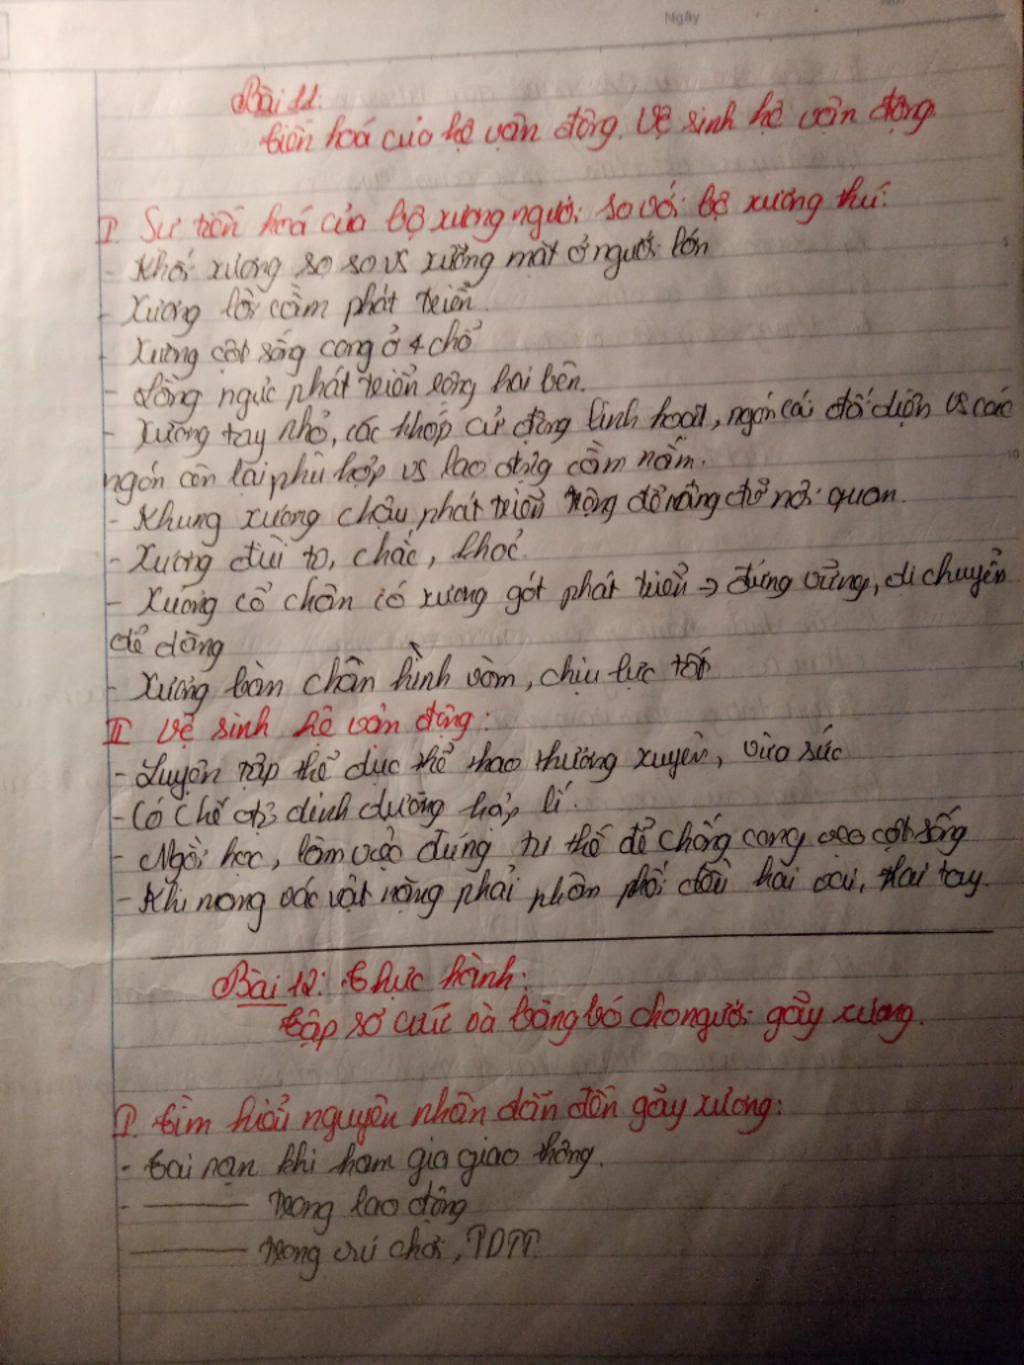 Ngày
Bài 11:
tiến hoá của hệ vận động. Vệ sinh hệ vận động.
I. Sự tiến hoá của bộ xương người so với bộ xương thú:
- Khối xương sọ so vs xương mặt ở người lớn
- Xương lồi cằm phát triển.
- Xương cột sống cong ở 4 chổ
- Lồng ngực phát triển rộng hai bên.
- Xương tay nhỏ, các khớp cử động linh hoạt, ngón cái đối diện vs các
ngón còn lại phù hợp vs lao động cầm nắm.
- Khung xương chậu phát triển rộng để nâng đỡ nội quan.
- Xương đùi to, chắc, khoẻ.
- Xương cổ chân có xương gót phát triển → đứng vững, di chuyển
dể dàng
- Xương bàn chân hình vòm, chịu lực tốt
II Vệ sinh hệ vận động:
- Luyện tập thể dục thể thao thường xuyên, vừa sức
- Có chế độ dinh dưỡng hợp lí.
- Ngồi học, làm việc đúng tư thế để chống cong vẹo cột sống
- Khi mang vác vật nặng phải phân phối đều hai vai, hai tay.
Bài 12: thực hành:
tập sơ cứu và băng bó cho người gãy xương.
I. tìm hiểu nguyên nhân dẫn đến gãy xương:
- tai nạn khi ham gia giao thông.
- ——— trong lao động
- ——— trong vui chơi, TDTT